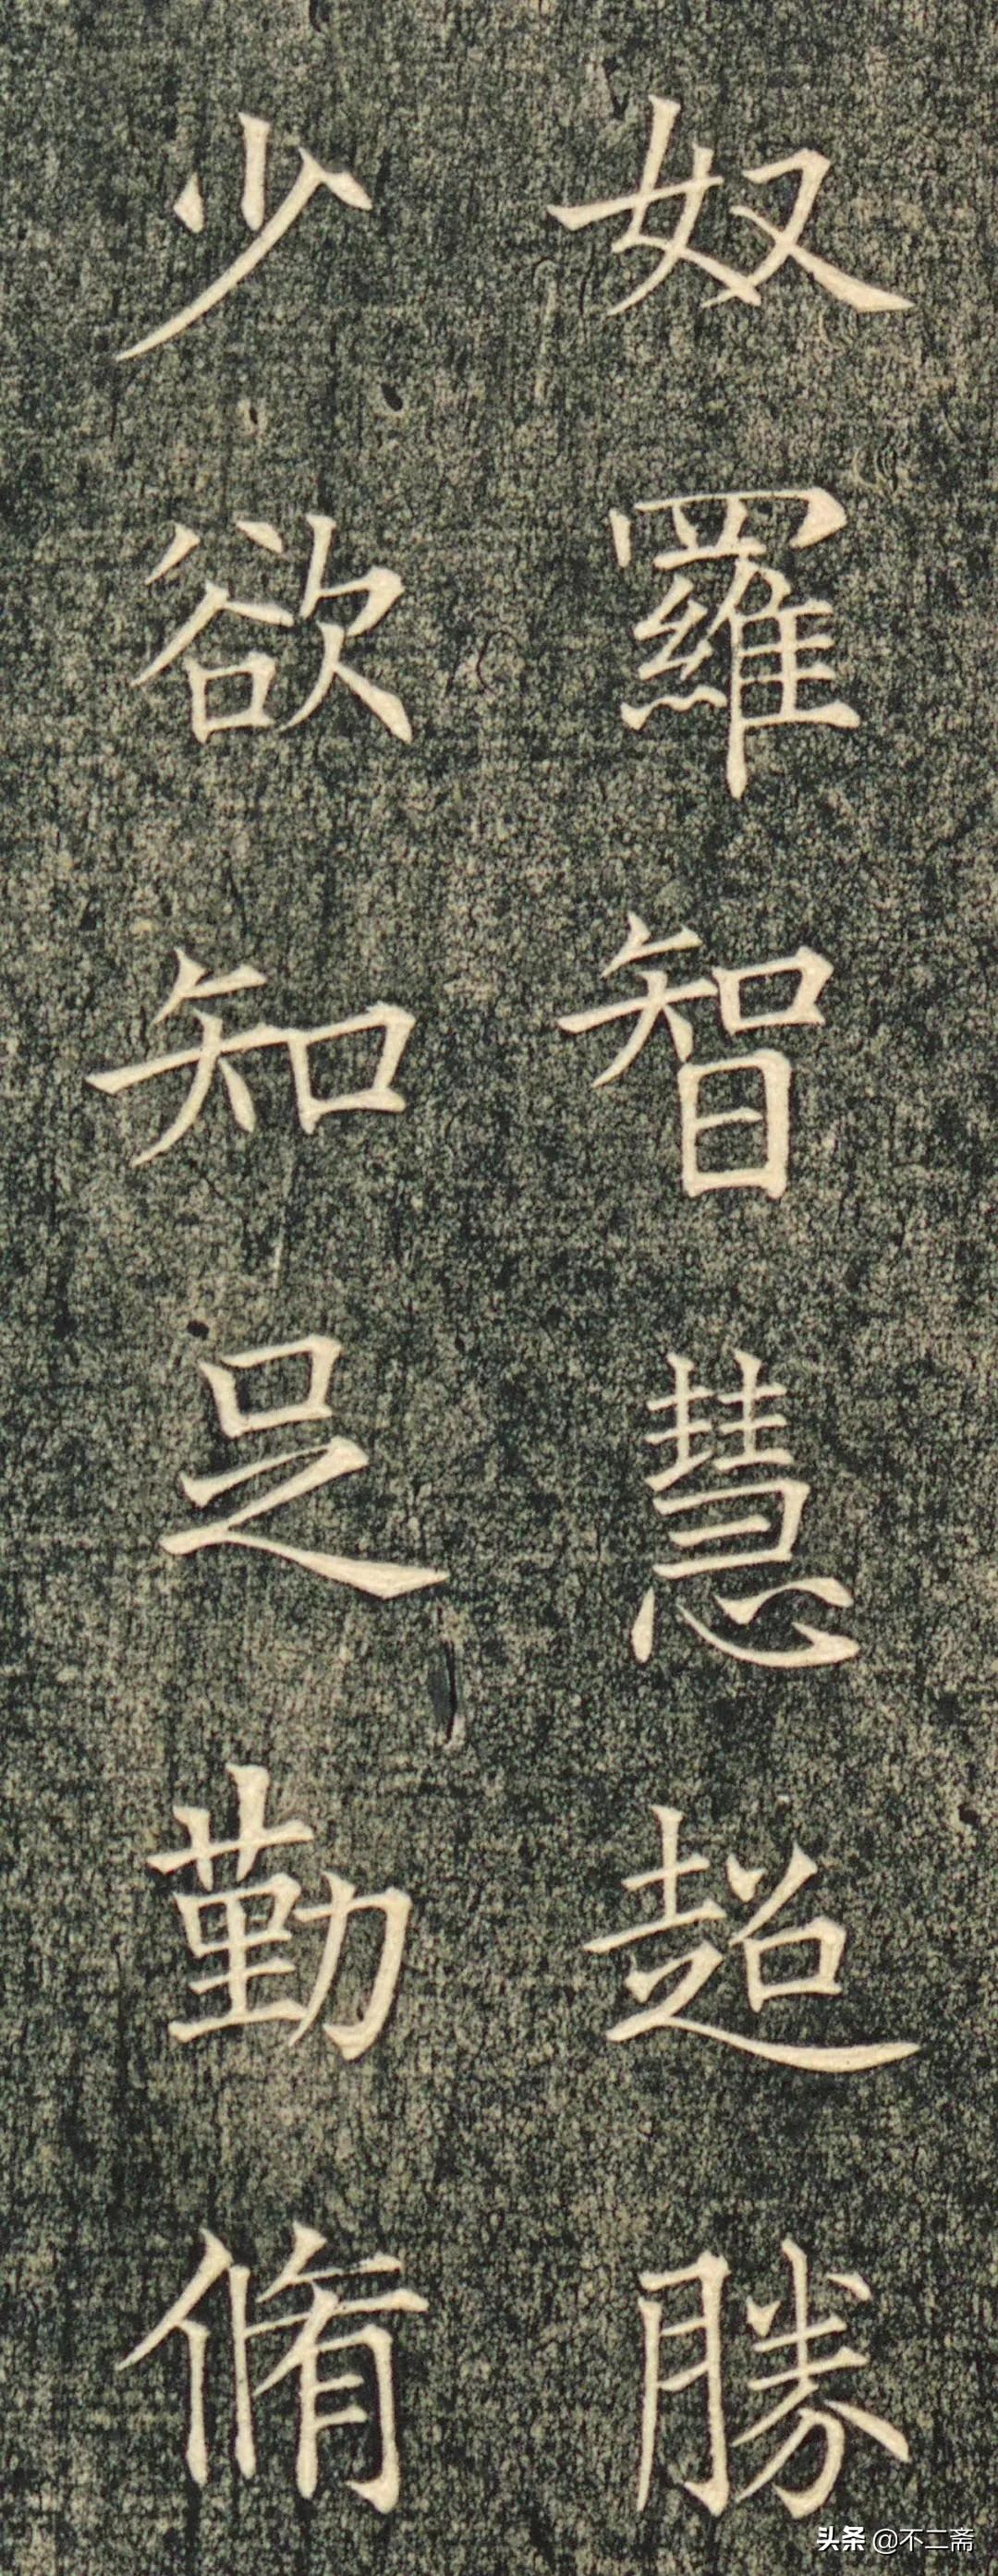 奴羅智慧超勝
少欲知足勤脩
头条 @不二斋